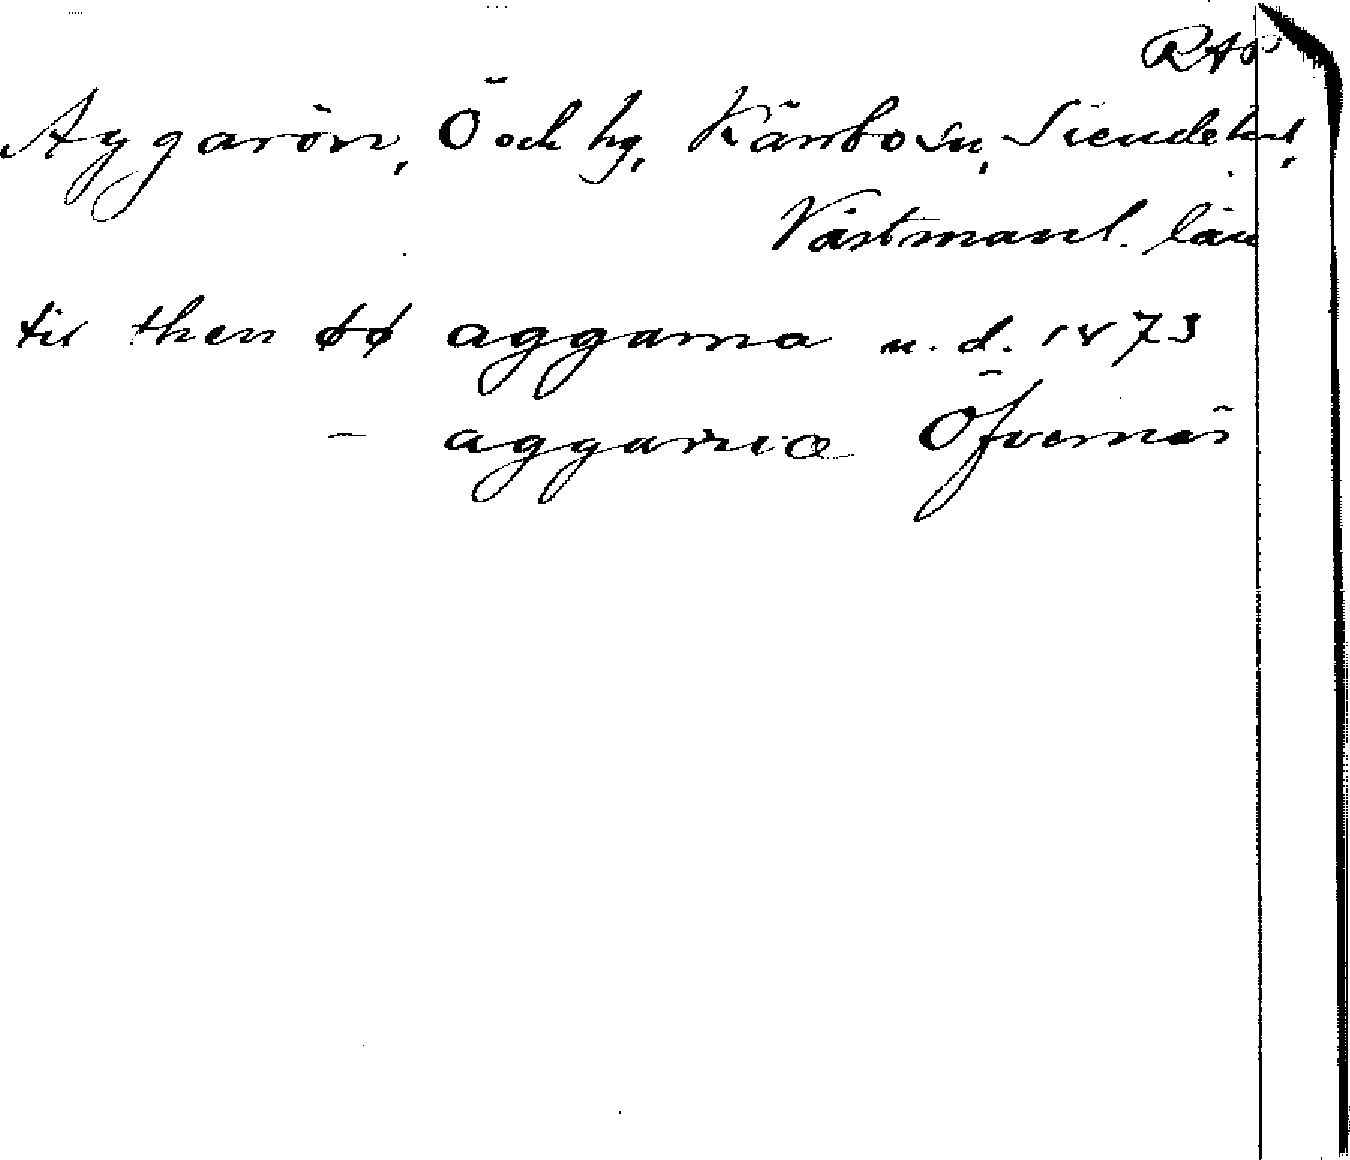 RAP
Aggarön, Ö och hg, Kärrbo sn, Siende hd,
Västmanl. län
til then øø aggarna u. d. 1473
- aggarna Öfvernäs